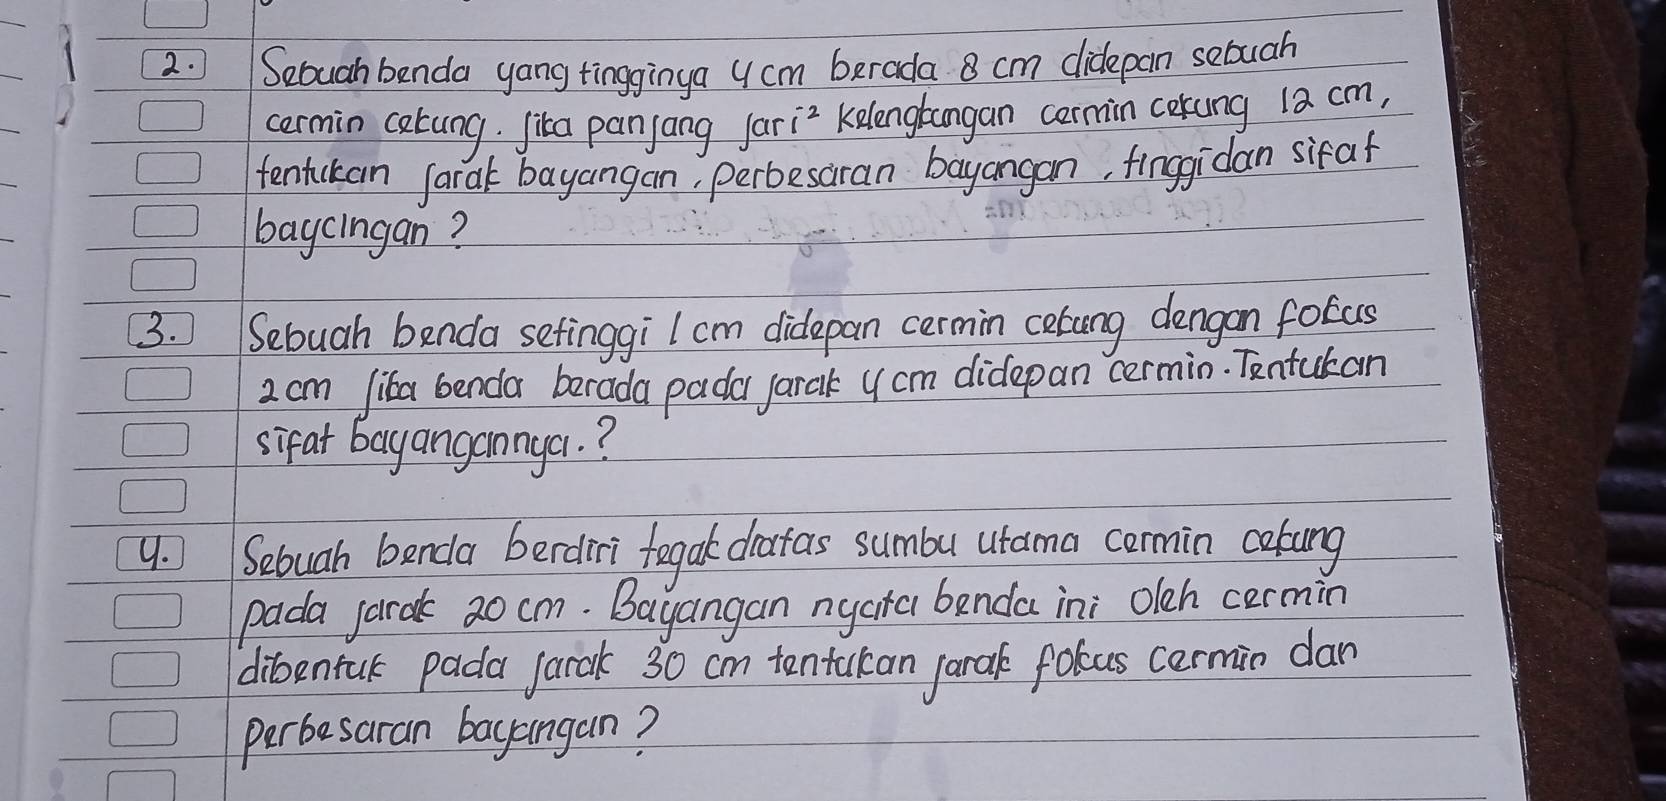 2. Sebuah benda yang tingginya 4 cm berada 8 cm didepan sebuah
cermin cekung. Jika panjang jari² kelengkungan cermin cekung 12 cm,
tentukan jarak bayangan, perbesaran bayangan, tinggi dan sifat
bayangan?
3. Sebuah benda setinggi 1 cm didepan cermin cekung dengan fokus
2 cm jika benda berada pada jarak 4 cm didepan cermin. Tentukan
sifat bayangannya.?
4. Sebuah benda berdiri tegak diatas sumbu utama cermin cekung
pada jarak 20 cm. Bayangan nyata benda ini oleh cermin
dibentuk pada jarak 30 cm tentukan jarak fokus cermin dan
perbesaran bayangan?